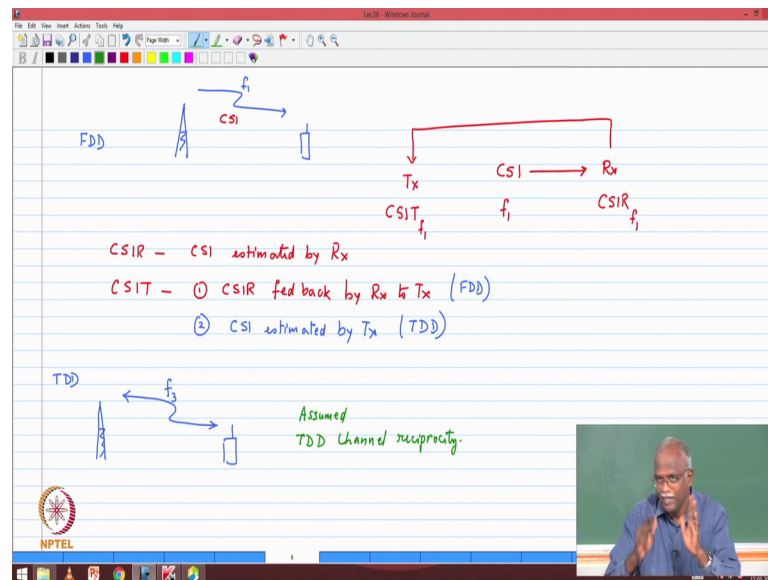 Lec36 - Windows Journal
File Edit View Insert Actions Tools Help
Page Width
B I
FDD
f1
CSI
Tx
CSI → Rx
CSIT f1
f1
CSIR f1
CSIR - CSI estimated by Rx
CSIT - ① CSIR fed back by Rx to Tx (FDD)
② CSI estimated by Tx (TDD)
TDD
f3
Assumed
TDD Channel reciprocity.
NPTEL
6